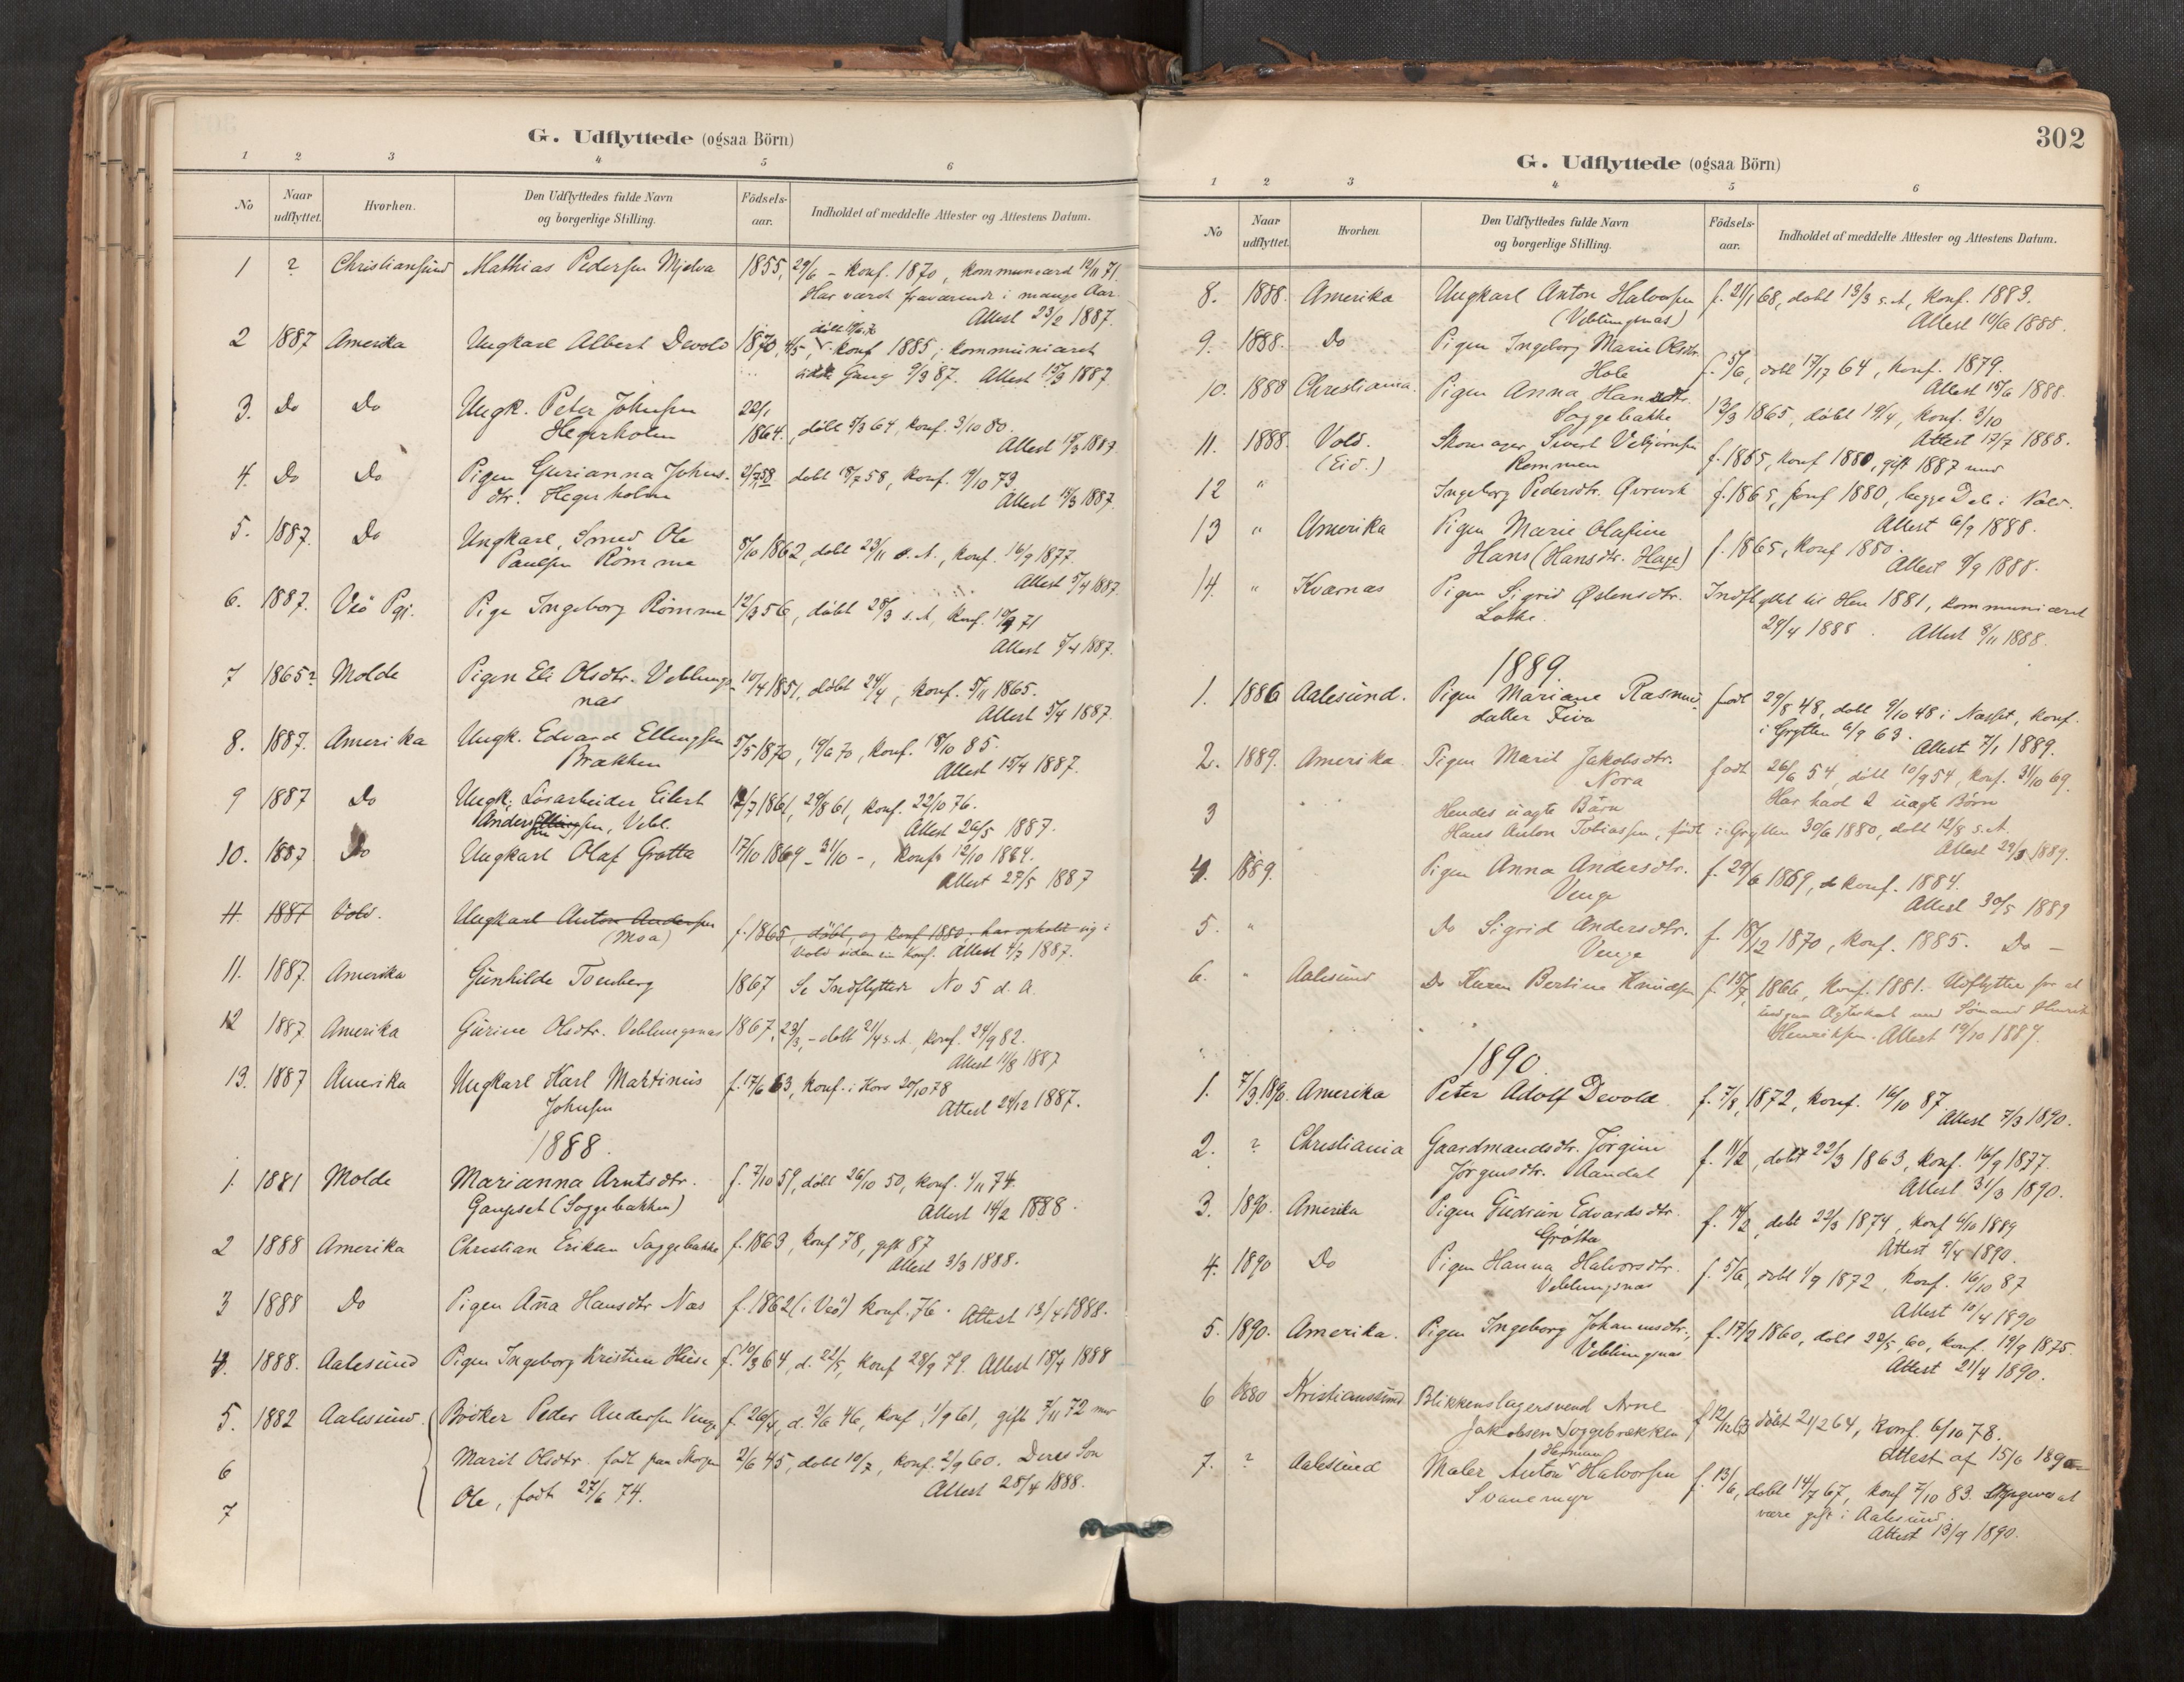 G. Udflyttede (ogsaa Börn)
1 2 3 4 5 6
No
Naar udflyttet.
Hvorhen.
Den Udflyttedes fulde Navn og borgerlige Stilling.
Födsels-aar.
Indholdet af meddelte Attester og Attestens Datum.
1 ? Christiansund Mathias Pedersen Mjelva 1855, 29/6 - Konf. 1870, kommuniceret 12/11 71.
Har været fraværende i mange Aar.
Attest 23/2 1887.
2 1887 Amerika Ungkarl Albert Devold 1870, 4/5, Konf 1885, kommuniceret
sidste Gang 9/3 87. Attest 15/3 1887.
3. Do Do Ungk. Peter Johnsen 22/1
Hegerholm 1864, döbt 5/3 64, Konf. 3/10 80.
Attest 1887.
4. Do Do Pigen Gurianna Johns-
dtr. Hegerholm 2/7 58 döbt 18/7 58, Konf. 73.
Attest 1887.
5. 1887. Do Ungkarl, Smed Ole
Paulsen Römma 8/10 1862, döbt 23/11 s. A., Konf. 16/9 1877.
Attest 5/4 1887.
6. 1887. Veö Pgj. Pige Ingeborg Römma 12/3 56, döbt 28/3 s. A, Konf. 71
Attest 5/4 1887.
7 1865? Molde Pigen Eli Olsdtr. Veblungs-
nas 10/4 1851, döbt 24/4, Konf. 5/11 1865.
Attest 5/4 1887.
8. 1887. Amerika Ungk. Edvard Ellingsen
Brakken 5/5 1870, 19/6 70, Konf. 18/10 85.
Attest 15/4 1887.
9 1887 Do Ungk. Lösarbeider Eilert
Andersen, Vebl. 1861, 29/8 61, Konf. 22/10 76.
Attest 26/5 1887.
10. 1887 Do Ungkarl Olaf Grøtta 17/10 1869 - 31/10 -, Konf. 12/10 1884.
Attest 27/5 1887
11. 1887 Vold. Ungkarl Anton Andersen
(Moa) f. 1865, döbt, og Konf 1880. har opholdt sig i
Vold siden sin Konf. Attest 4/7 1887.
11. 1887. Amerika Gunhilde Tonberg 1867 Se Indflyttede No 5 d. A.
12 1887 Amerika Gurine Olsdtr. Veblungsnas 1867, 23/3, - döbt 21/4 s. A, Konf. 24/9 82.
Attest 11/8 1887
13. 1887 Amerika Ungkarl Karl Martinus
Johnsen f. 17/6 63, Konf. i Hors 20/10 78
Attest 24/12 1887.
1888.
1. 1881 Molde Marianna Arntsdtr.
Gaupset (Soggebakken) f. 7/10 59, döbt 26/10 50, Konf. 1/11 74.
Attest 14/2 1888.
2 1888 Amerika Christian Eriksen Soggebakke f. 1863, Konf 78, gift 87
Attest 3/3 1888.
3 1888 Do Pigen Anna Hansdtr Nas f. 1862 (i Veö) Konf. 76. Attest 13/4 1888.
4. 1888. Aalesund Pigen Ingeborg Kristine Huse f. 10/3 64, d. 22/5, Konf 28/9 79. Attest 18/4 1888
5. 1882 Aalesund. Bödker Peder Andersen Venge f. 26/4, d. 2/6 46, Konf. 1/9 61, gift 7/11 72 med
6 Marit Olsdtr. födt paa Skogen 2/6 45, döbt 10/7, Konf. 2/9 60. Deres Sön
7 Ole, födt 27/6 74. Attest 28/4 1888.
302
G. Udflyttede (ogsaa Börn)
1 2 3 4 5 6
No
Naar udflyttet.
Hvorhen
Den Udflyttedes fulde Navn og borgerlige Stilling.
Födsels-aar.
Indholdet af meddelte Attester og Attestens Datum.
8. 1888. Amerika Ungkarl Anton Halvorsen
(Veblungsnas) f. 21/1 68, döbt 13/3 s. A, Konf. 1883.
Attest 10/6 1888.
9. 1888. Do Pigen Ingeborg Marie Olsdtr.
Hole f. 5/6, döbt 64, Konf. 1879.
Attest 15/6 1888.
10. 1888 Christiania. Pigen Anna Hansdtr.
Soggebakke 13/3 1865, döbt 19/4, Konf. 3/10
Attest 17/7 1888.
11. 1888. Vold.
(Eid.) Skomager Sivert Vebjørnsen
Remmen f. 1865, Konf 1880, gift 1887 med
12 " Ingeborg Pedersdtr. f. 1865, Konf 1880, begge Dele i Vold.
Attest 6/9 1888.
13 " Amerika Pigen Marie Olafine
Hans (Hansdtr. Hage) f. 1865, Konf 1880.
Attest 9/9 1888.
14. " Kværnas Pigen Sigrid Østensdtr.
Løkke. Indflyttet til Hen 1881, kommuniceret
29/4 1888. Attest 8/11 1888.
1889.
1. 1886 Aalesund. Pigen Mariane Rasmus-
datter Fiva födt 29/8 48, döbt 9/10 48 i Nesset, Konf.
i Grytten 6/9 63. Attest 7/1 1889.
2. 1889. Amerika. Pigen Marit Jakobsdtr.
Nora födt 26/6 54, döbt 10/9 54, Konf. 31/10 69.
Har havt 2 uægte Börn
3 Hendes uægte Barn
Hans Anton Tobiassen, födt i Grytten 30/6 1880, döbt 12/8 s. A.
Attest 29/3 1889.
4. 1889. Pigen Anna Andersdtr.
Venge f. 29/6 1869, Konf. 1884.
Attest 30/5 1889
5. " Do Sigrid Andersdtr.
Venge f. 18/12 1870, Konf. 1885. Do -
6. " Aalesund Do Karen Bertine Knudsen f. 15/7, 1866, Konf. 1881. Udflytter for at
indgaa Ægteskab med Sömand Henrik
Henriksen. Attest 19/10 1889.
1890.
1. 7/3 1890. Amerika Peter Adolf Devold f. 7/8, 1872, Konf. 16/10 87
Attest 7/3 1890.
2. ? Christiania Gaardmandsdtr. Jörgine
Jörgensdtr. Aandal f. 11/2, döbt 22/3 1863, Konf. 16/9 1877.
Attest 31/3 1890.
3. 1890. Amerika Pigen Gudrun Edvardsdtr.
Grøtta f. 14/2, döbt 22/3 1874, Konf 6/10 1889
Attest 9/4 1890.
4. 1890 Do Pigen Hanna Halvorsdtr.
Veblungsnas f. 5/6, döbt 1/9 1872, Konf. 16/10 87
Attest 10/4 1890
5. 1890. Amerika. Pigen Ingeborg Johannesdtr.,
Veblungsnas f. 17/2 1860, döbt 28/5, 60, Konf. 19/9 1875.
Attest 21/4 1890.
6 1880 Kristianssund Blikkenslagersvend Arne
Jakobsen Soggebrækken f 12/12 63 döbt 21/2 64, Konf. 6/10 78.
Attest af 15/6 1890
7. ? Aalesund Maler Anton Herman Halvorsen
Svanemyr f. 13/6, döbt 14/7 67, Konf 7/10 83. Opgives at
være gift i Aalesund.
Attest 13/9 1890.